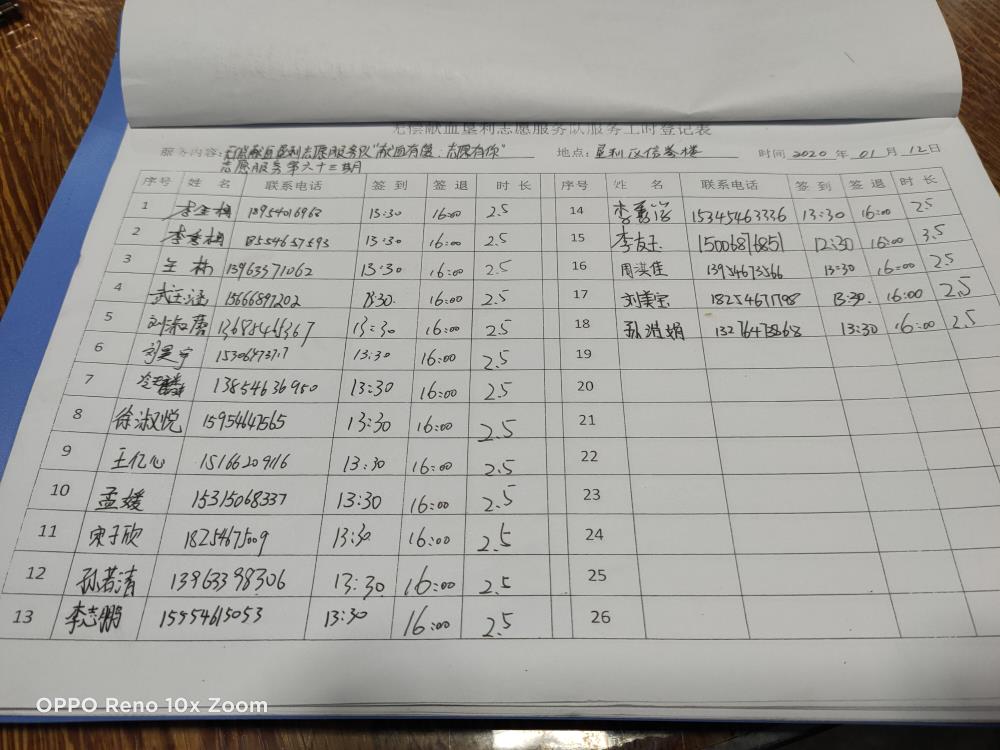 无偿献血垦利志愿服务队服务工时登记表
服务内容: 无偿献血垦利志愿服务队“献血有爱，志愿有你” 地点: 垦利区信誉楼 时间 2020 年 01 月 12 日
志愿服务第六十三期
序号 姓 名 联系电话 签 到 签 退 时 长 序号 姓 名 联系电话 签 到 签 退 时 长
1 13954016962 13:30 16:00 2.5 14 15345463336 13:30 16:00 2.5
2 18554657593 13:30 16:00 2.5 15 李友 15006876851 12:30 16:00 3.5
3 13963371062 13:30 16:00 2.5 16 周淇佳 13954673566 13:30 16:00 2.5
4 15666897202 13:30. 16:00 2.5 17 刘美宝 18254671798 13:30. 16:00 2.5
5 13685465367 13:30 16:00 2.5 18 13276473868 13:30 16:00 2.5
6 刘昊宇 13:30 16:00 2.5 19
7 13854636950 13:30 16:00 2.5 20
8 徐淑悦 15954647565 13:30 16:00 2.5 21
9 王亿心 15166209116 13:30 16:00 2.5 22
10 孟媛 15315068337 13:30 16:00 2.5 23
11 宋子欣 18254675009 13:30 16:00 2.5 24
12 孙若清 13963398306 13:30 16:00 2.5 25
13 李志鹏 15554615053 13:30 16:00 2.5 26
OPPO Reno 10x Zoom